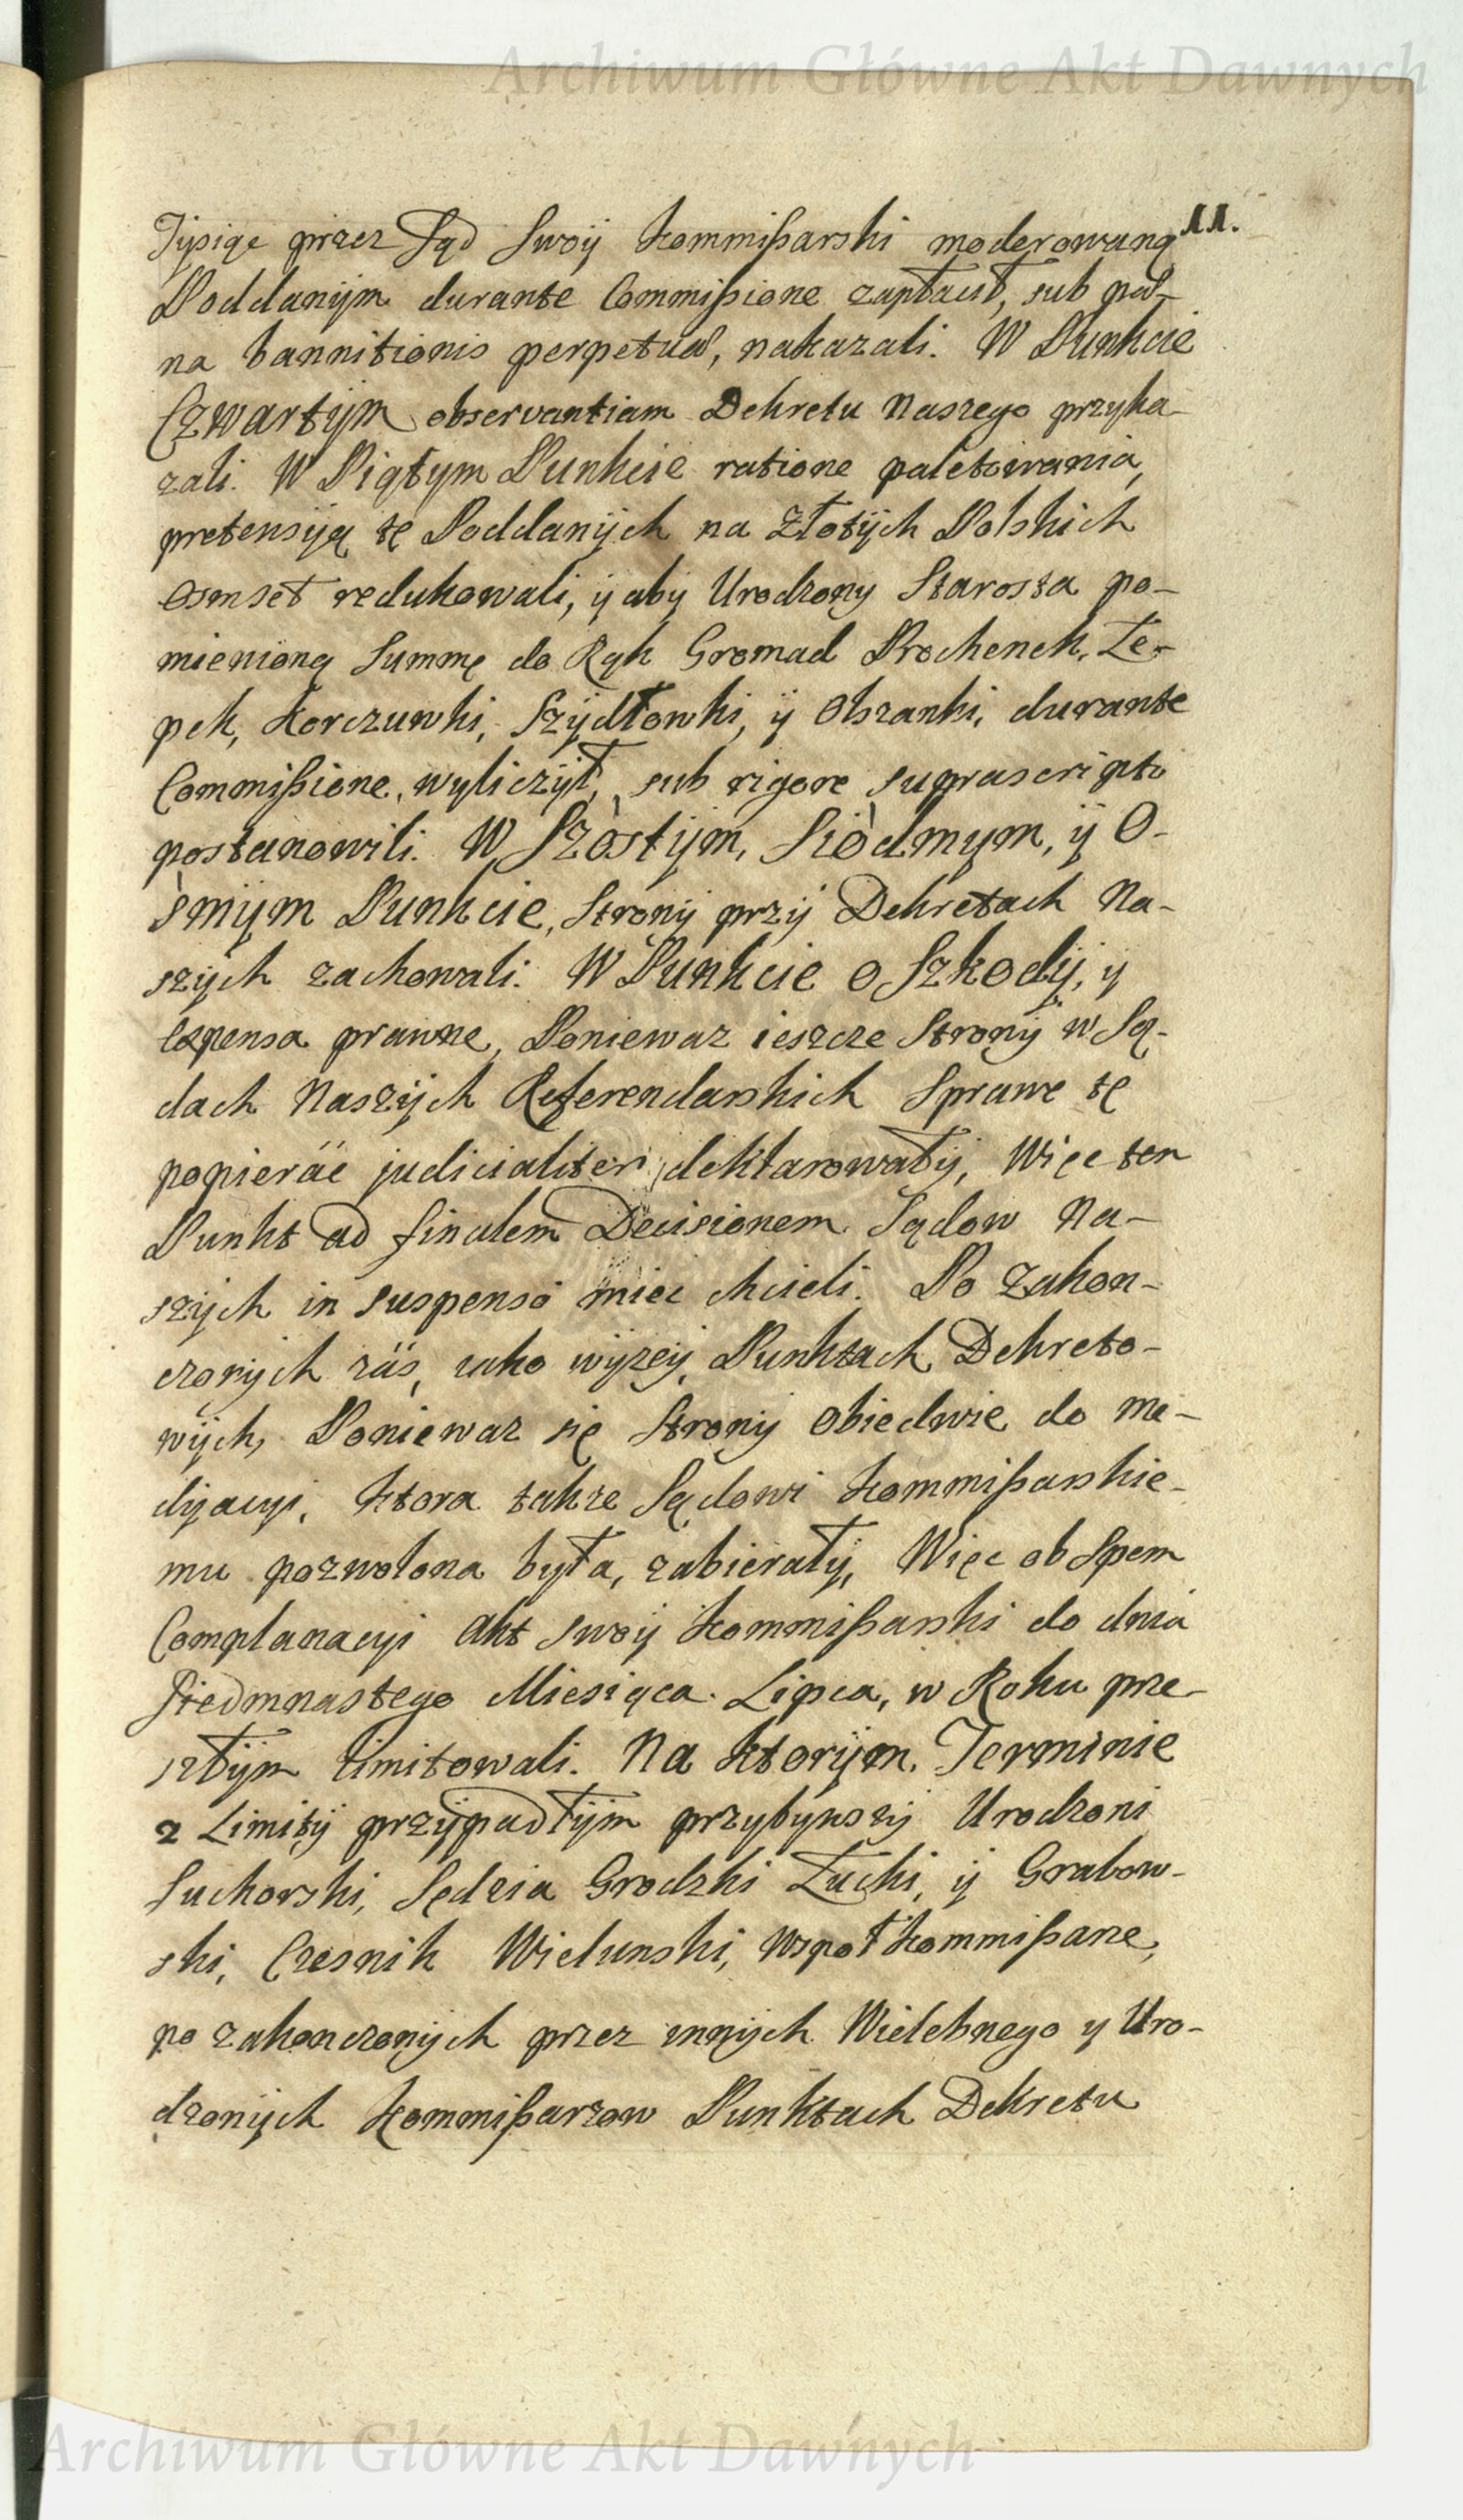 Archiwum Główne Akt Dawnych
11.
Tysiąc przez Sąd Swoÿ Kommißarski moderowaną
Poddanÿm durante Commißione zapłacił, sub pœ-
na bannitionis perpetuæ, nakazali. W Punkcie
Czwartÿm observantiam Dekretu Naszego przyka-
zali. W Piątym Punkcie ratione paletowania,
pretensÿą tę Poddanÿch na Złotÿch Polskich
Osmset redukowali, ÿ abÿ Urodzony Starosta po-
mienioną Summę do Rąk Gromad Prochenek, Łe-
pek, Korczuwki, Szÿdłowki, ÿ Olszanki, durante
Commißione, wyliczÿł, sub rigore suprascripto
postanowili. W Szòstÿm, Siòdmym, ÿ O-
smÿm Punkcie, Stronÿ przÿ Dekretach Na-
szÿch zachowali. W Punkcie o Szkodÿ, y
Expensa prawne, Poniewaz ieszcze Stronÿ w Są-
dach Naszÿch Referendarskich Sprawe tę
popieräc judicialiter deklarowałÿ, Więc ten
Punkt ad finalem Decisionem Sądow Na-
szÿch in suspenso miec chcieli. Po Zakon-
czonÿch zäs, iako wÿzeÿ, Punktach Dekreto-
wÿch, Poniewaz się Stronÿ Obiedwie do Me-
dÿacyi, ktora takze Sądowi Kommißarskie-
mu pozwolona była, zabierałÿ, Więc ob Spem
Complanacyi Akt Swoÿ Kommißarski do dnia
Siedmnastego Miesiąca Lipca, w Roku prze-
szłÿm limitowali. Na ktorÿm Terminie
z Limitÿ przÿpadłÿm przybÿwszÿ Urodzoni
Suchorski, Sędzia Grodzki Łucki, ÿ Grabow-
ski, Czesnik Wielunski, Wspoł Kommißarze,
po zakonczonÿch przez innÿch Wielebnego y Uro-
dzonÿch Kommißarzow Punktach Dekretu
Archiwum Główne Akt Dawnych